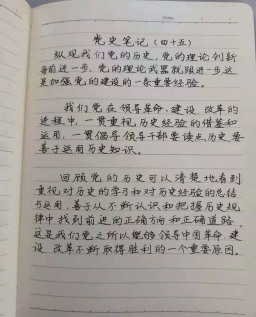 党史笔记(四十五)
纵观我们党的历史,党的理论创新
每前进一步,党的理论武装就跟进一步,这
是加强党的建设的一条重要经验。
我们党在领导革命、建设、改革的
进程中,一贯重视历史经验的借鉴和
运用,一贯倡导领导干部要读点历史,要
善于运用历史知识。
回顾党的历史可以清楚地看到
重视对历史的学习和对历史经验的总结
与运用,善于从不断认识和把握历史规
律中找到前进的正确方向和正确道路,
这是我们党之所以能够领导中国革命、建
设、改革不断取得胜利的一个重要原因。